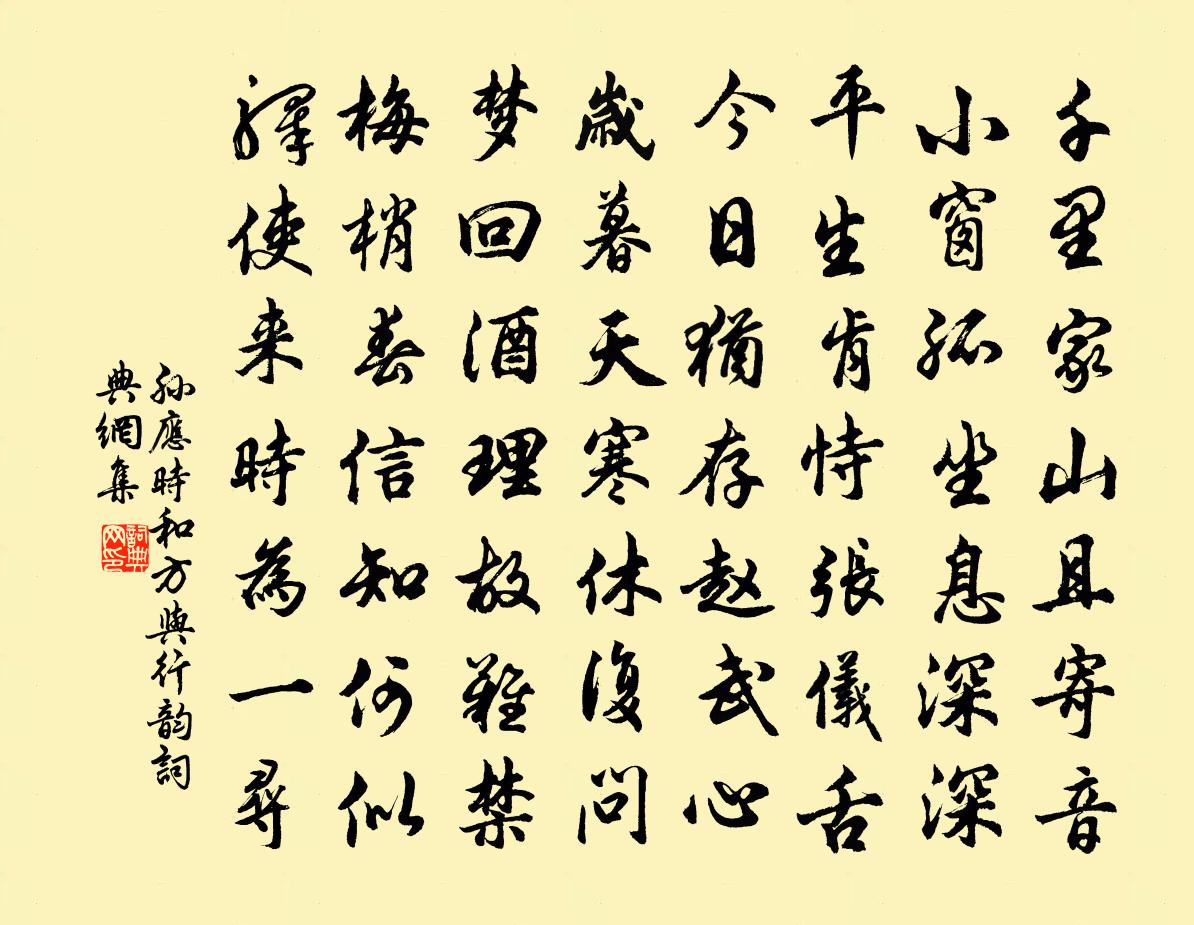 千里家山且寄音
小窗孤坐息深深
平生肯恃張儀舌
今日猶存赵武心
歲暮天寒休復问
梦回酒理故難禁
梅梢春信知何似
驛使来時為一尋
孫應時和方與行韵詞
典網集
詞典
网印